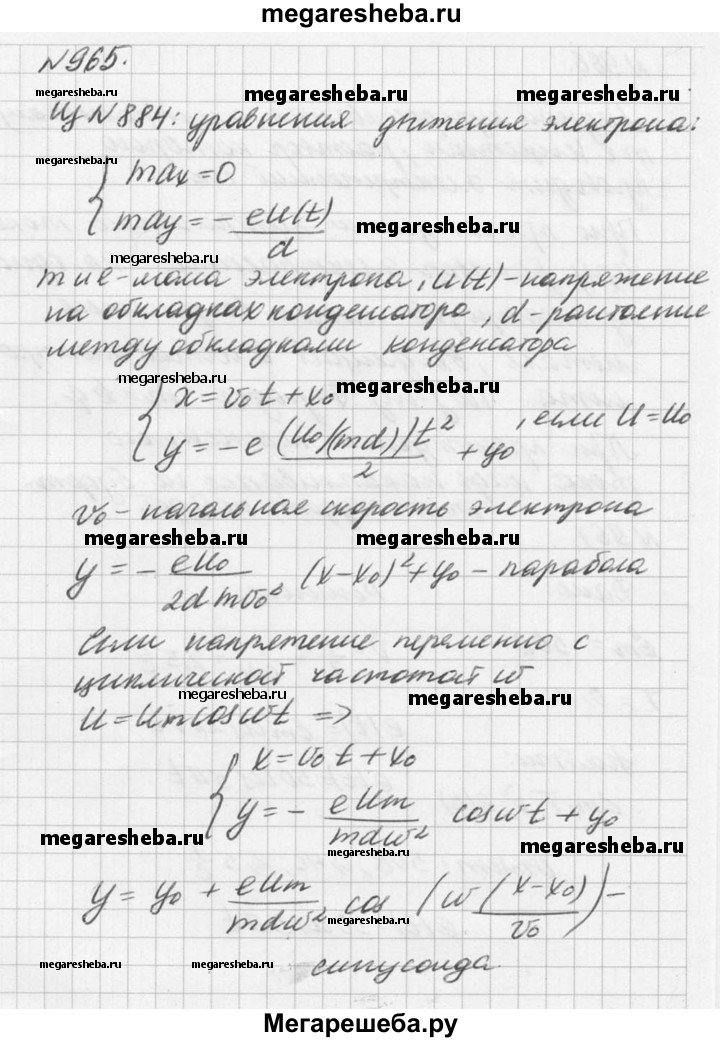 megaresheba.ru
№965.
megaresheba.ru megaresheba.ru megaresheba.ru
Из №884: уравнения движения электрона:
megaresheba.ru
{ max = 0
may = - eU(t)/d
megaresheba.ru
megaresheba.ru
m и e - масса электрона, U(t) - напряжение
на обкладках конденсатора, d - расстояние
между обкладками конденсатора
megaresheba.ru megaresheba.ru
{ x = v₀t + x₀
y = - e (U₀)(md))t²/2 + y₀ , если U = U₀
v₀ - начальная скорость электрона
megaresheba.ru megaresheba.ru
y = - eU₀/2dmv₀² (x-x₀)² + y₀ - парабола
Если напряжение переменно с
циклической частотой w
megaresheba.ru megaresheba.ru
U = Um cos wt =>
{ x = v₀t + x₀
y = - eUm/mdw² cos wt + y₀
megaresheba.ru megaresheba.ru megaresheba.ru
y = y₀ + eUm/mdw² cos (w (x-x₀)/v₀) -
megaresheba.ru
синусоида.
megaresheba.ru megaresheba.ru megaresheba.ru
Мегарешеба.ру